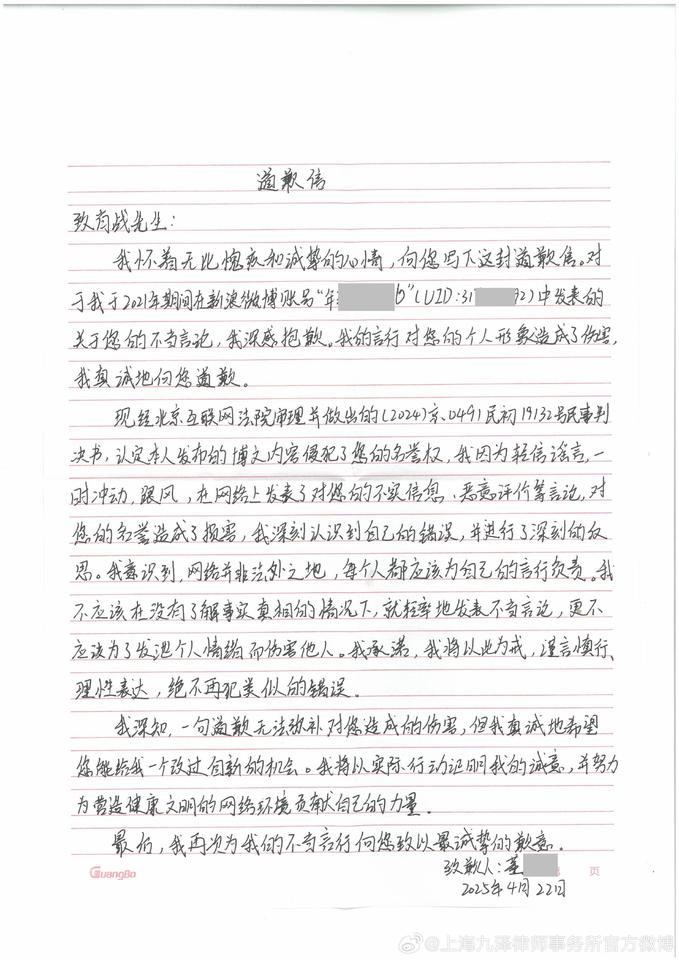 道歉信
致肖战先生：
我怀着无比愧疚和诚挚的心情，向您写下这封道歉信。对
于我于2021年期间在新浪微博账号“年 b”（UID:31 92）中发表的
关于您的不当言论，我深感抱歉。我的言行对您的个人形象造成了伤害，
我真诚地向您道歉。
现经北京互联网法院审理并做出的（2024）京0491民初19132号民事判
决书，认定本人发布的博文内容侵犯了您的名誉权，我因为轻信谣言，一
时冲动，跟风，在网络上发表了对您的不实信息、恶意评价等言论，对
您的名誉造成了损害，我深刻认识到自己的错误，并进行了深刻的反
思。我意识到，网络并非法外之地，每个人都应该为自己的言行负责。我
不应该在没有了解事实真相的情况下，就轻率地发表不当言论，更不
应该为了发泄个人情绪而伤害他人。我承诺，我将以此为戒，谨言慎行、
理性表达，绝不再犯类似的错误。
我深知，一句道歉无法弥补对您造成的伤害，但我真诚地希望
您能给我一个改过自新的机会。我将以实际行动证明我的诚意，并努力
为营造健康文明的网络环境贡献自己的力量。
最后，我再次为我的不当言行向您致以最诚挚的歉意。
致歉人：董
GuangBo 页
2025年4月22日
@上海九泽律师事务所官方微博